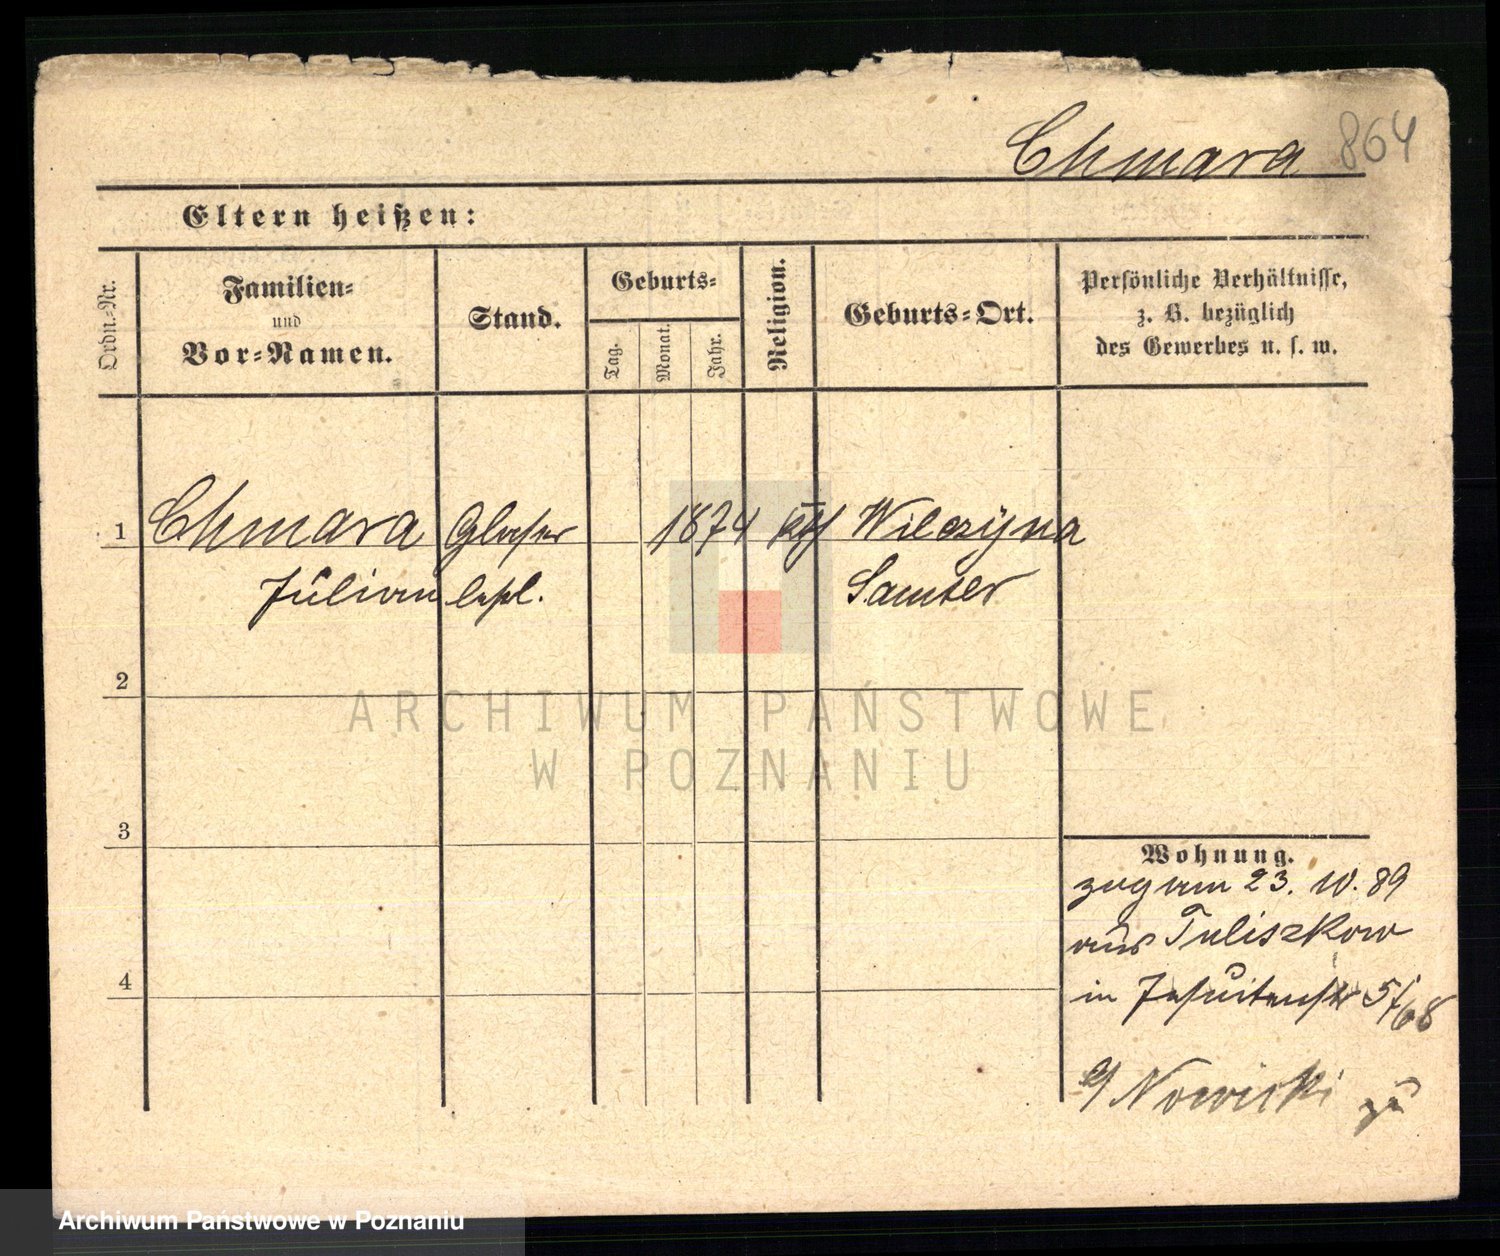 Chmara 864
Eltern heißen:
Ordn.-Nr.
Familien-
und
Vor-Namen.
Stand.
Geburts-
Tag.
Monat.
Jahr.
Religion.
Geburts-Ort.
Persönliche Verhältnisse,
z. B. bezüglich
des Gewerbes u. s. w.
1 Chmara Glaser 1874 kth Wilczyna
Julian lehrl. Samter
2
3
4
Wohnung.
zug am 23. 10. 89
aus Tuliszkow
in Jesuitenstr 5/
b/ Nowicki zu
ARCHIWUM PAŃSTWOWE
W POZNANIU
Archiwum Państwowe w Poznaniu